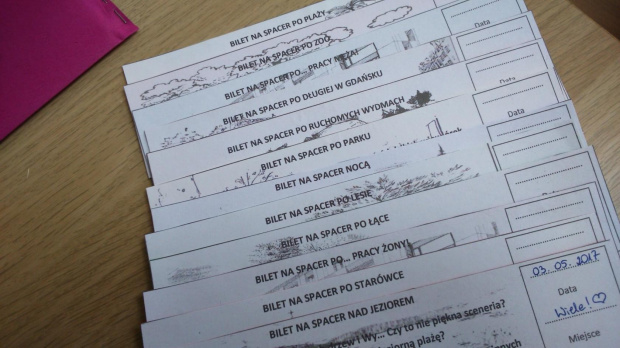 BILET NA SPACER PO PLAŻY
BILET NA SPACER PO ZOO
BILET NA SPACER PO... PRACY MĘŻA!
BILET NA SPACER PO DŁUGIEJ W GDAŃSKU
BILET NA SPACER PO RUCHOMYCH WYDMACH
BILET NA SPACER PO PARKU
BILET NA SPACER NOCĄ
BILET NA SPACER PO LESIE
BILET NA SPACER PO ŁĄCE
BILET NA SPACER PO... PRACY ŻONY
BILET NA SPACER PO STARÓWCE
BILET NA SPACER NAD JEZIOREM
i Wy... Czy to nie piękna sceneria?
plażę?
Data
Data
03.05.2017
Data
Wiele! ♡
Miejsce